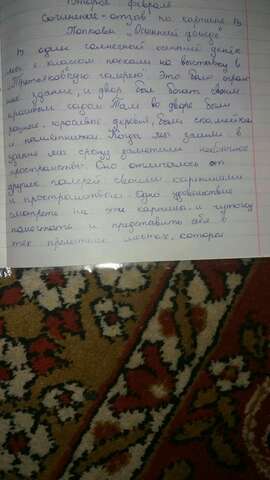 Второе февраля
Сочинение-отзыв по картине В
Попкова „Осенний дожди"
В один солнечный осенний день
мы с классом поехали на выставку в
„Третьяковскую галерею". Это было огромное
здание, и двор был богат своим
красивым садом. Там во дворе были
разные, красивые деревья, были скамейки
и памятники. Когда мы зашли в
здание мы сразу заметили необычное
пространство. Оно отличалось от
других галерей своими картинами
и пространством. Одно удовольствие
смотреть на эти картины и чуточку
помечтать и представить себя в
тех прелестных местах, которы